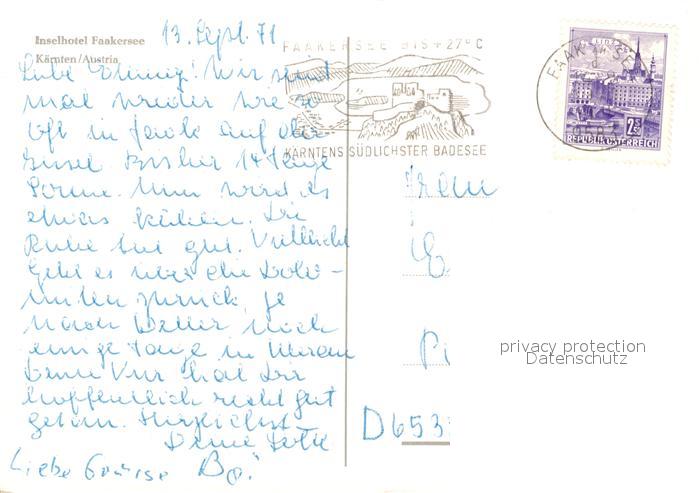 Inselhotel Faakersee
Kärnten/Austria
13. Sept. 71
FAAKERSEE BIS +27°C
KÄRNTENS SÜDLICHSTER BADESEE
FAAK
LINZ
2.50
S
REPUBLIK ÖSTERREICH
Wir sind
mal wieder wie so
oft in Faak auf der
Insel. Bisher 14 Tage
Sonne. Nun wird es
etwas kühler. Die
Ruhe tut gut. Vielleicht
geht es über die Dolo-
miten zurück, je
nach Wetter noch
einige Tage in Meran
Deine Kur hat Dir
hoffentlich recht gut
getan. Herzlichst
Deine
Liebe Grüsse Bo.
Frau
E
Pi
D 653
privacy protection
Datenschutz